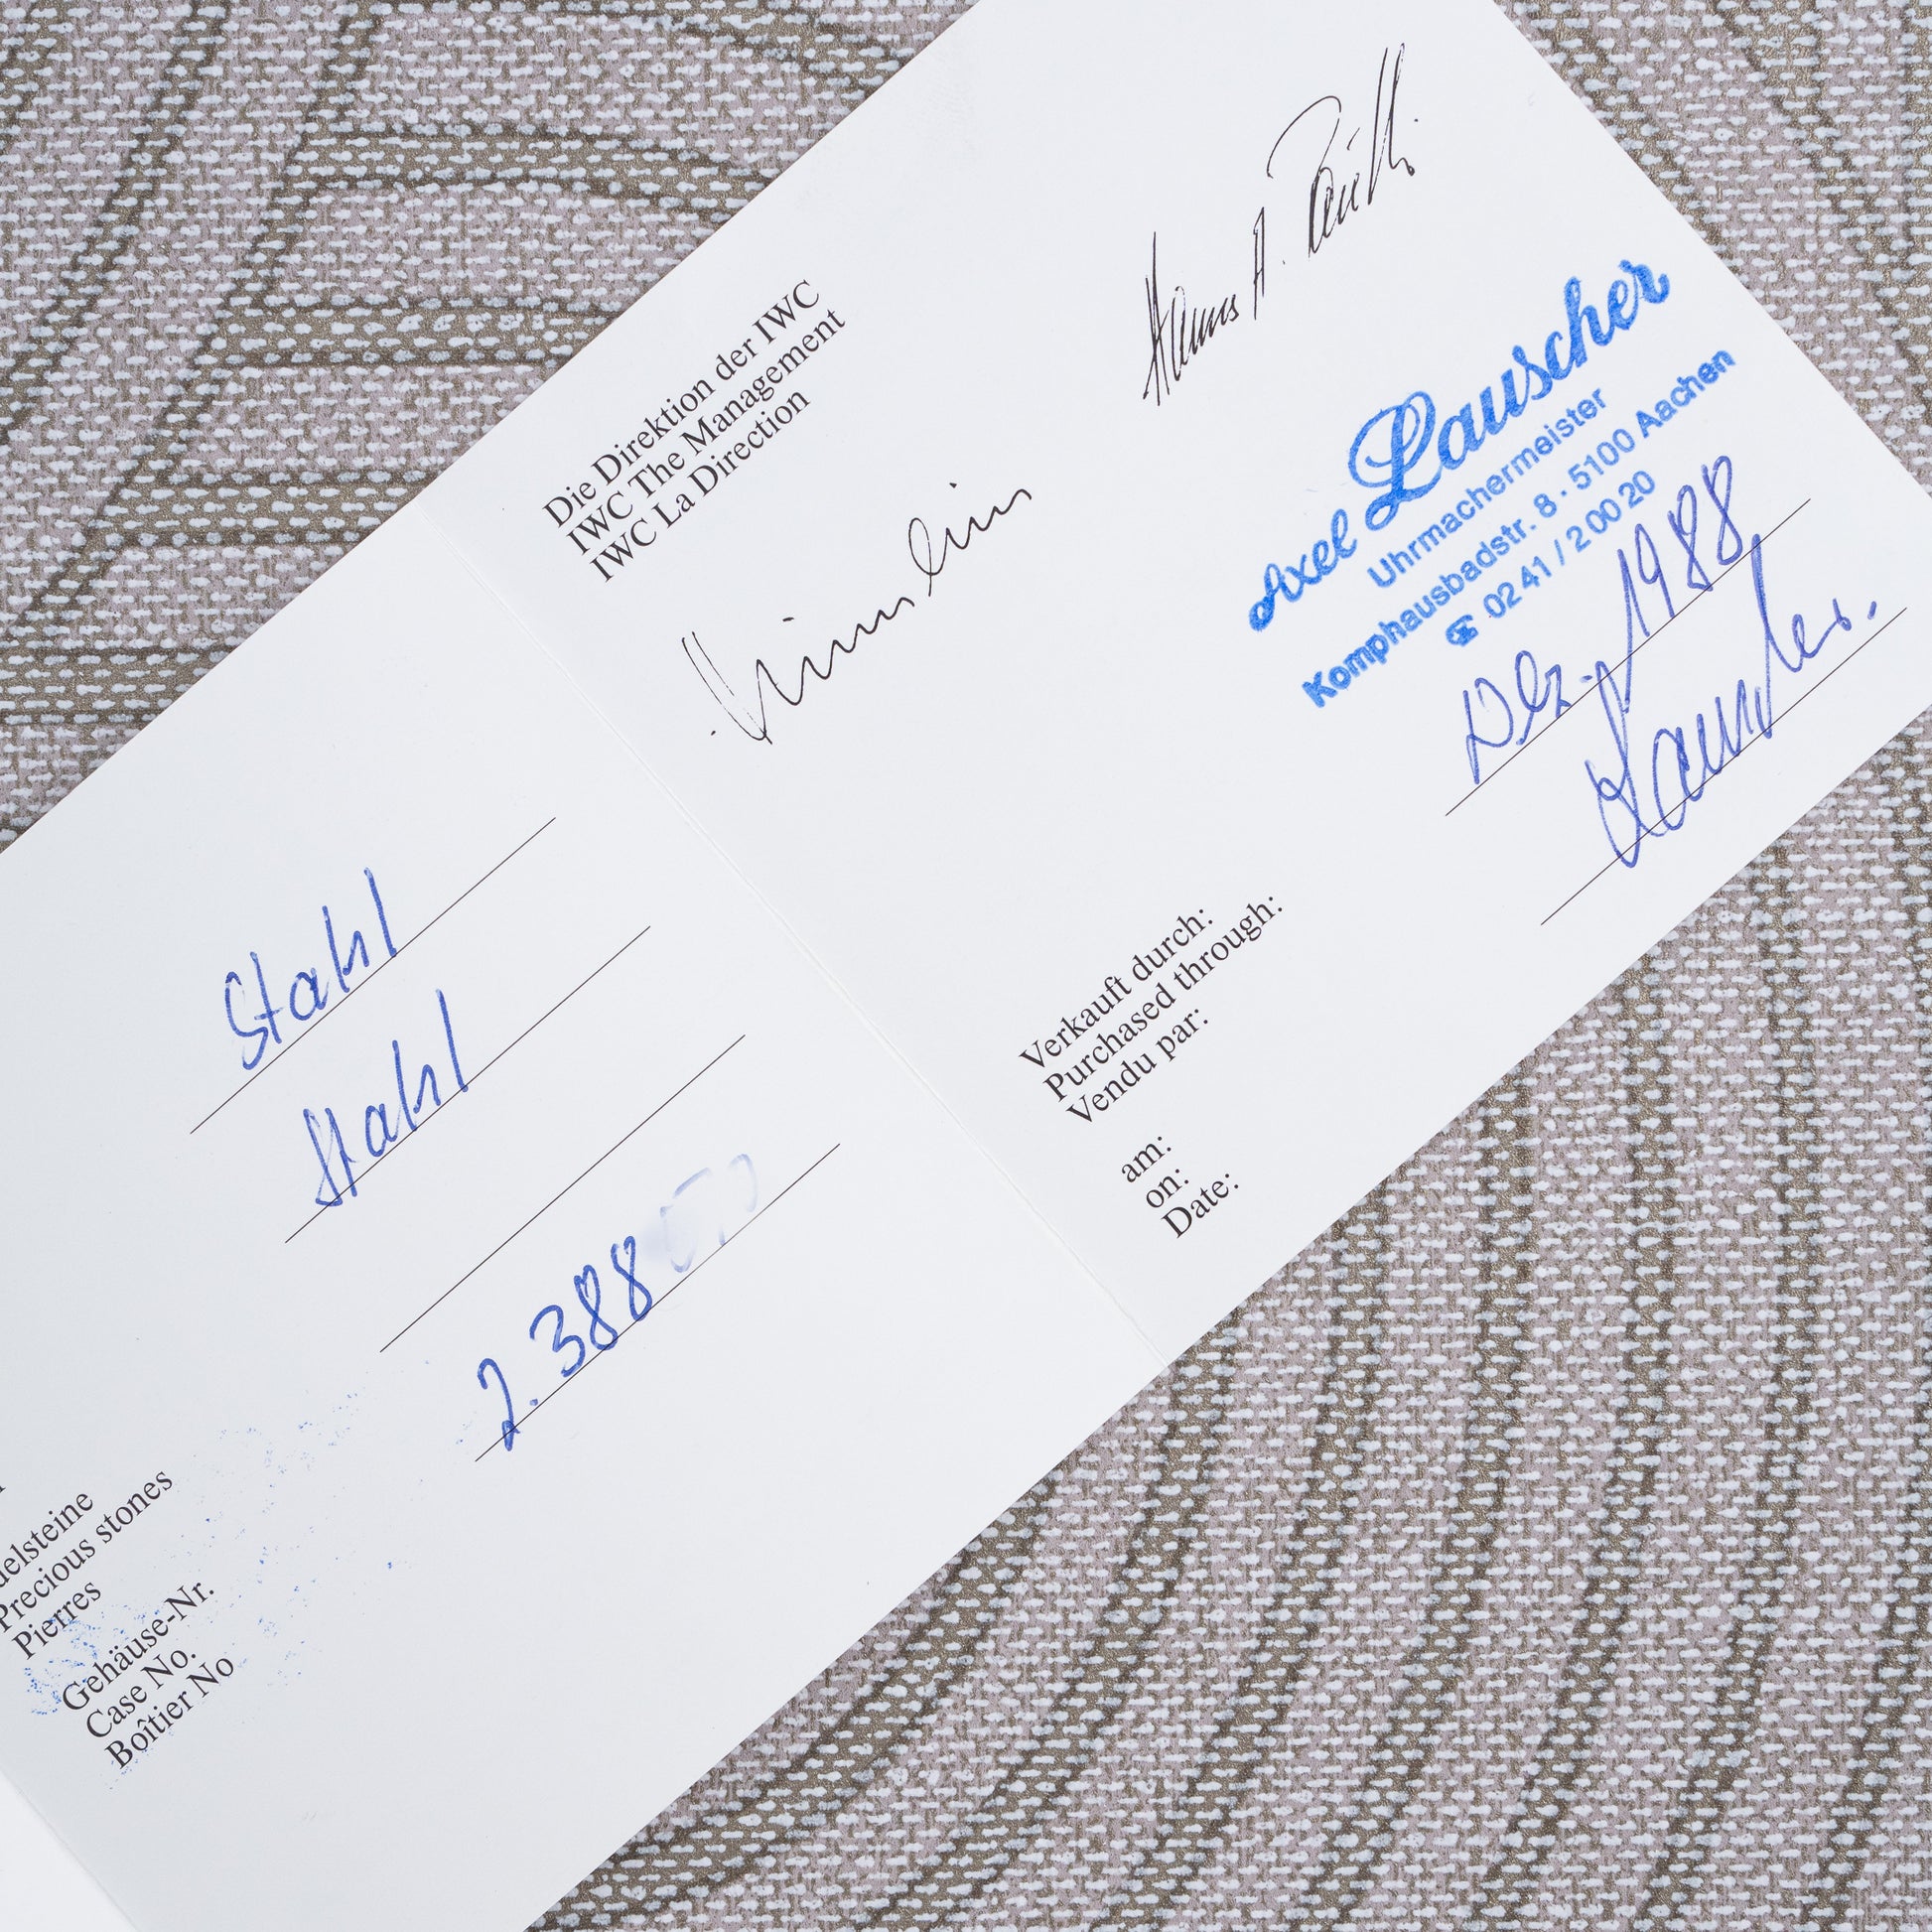 Stahl
Stahl
2.388
Precious stones
Pierres
Gehäuse-Nr.
Case No.
Boîtier No
Die Direktion der IWC
IWC The Management
IWC La Direction
Hannes A.
Axel Lauscher
Uhrmachermeister
Komphausbadstr. 8 · 5100 Aachen
☎ 02 41 / 2 00 20
Dez. 1988
Lauscher.
Verkauft durch:
Purchased through:
Vendu par:
am:
on:
Date: